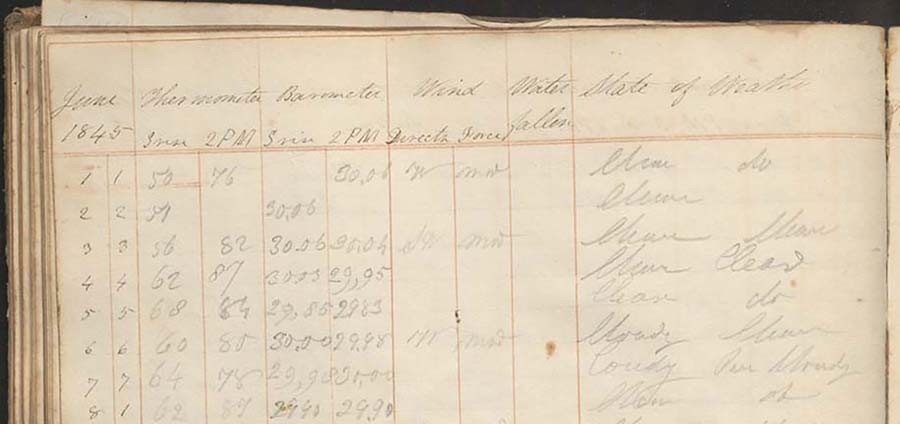 June Thermometer Barometer Wind Water State of Weathe
1845 Srise 2PM Srise 2PM Directn Force fallen
1 1 50 76 30.06 W mod Clear do
2 2 51 30.06 Clear
3 3 56 82 30.06 30.04 SW mod Clear Clear
4 4 62 87 30.03 29,95 Clear Clear
5 5 68 84 29,85 2983 Clear do
6 6 60 80 30.00 29.98 W mod Cloudy Clear
7 7 64 78 29,98 30,00 Coudy Cloudy
8 1 62 87 2990 2990